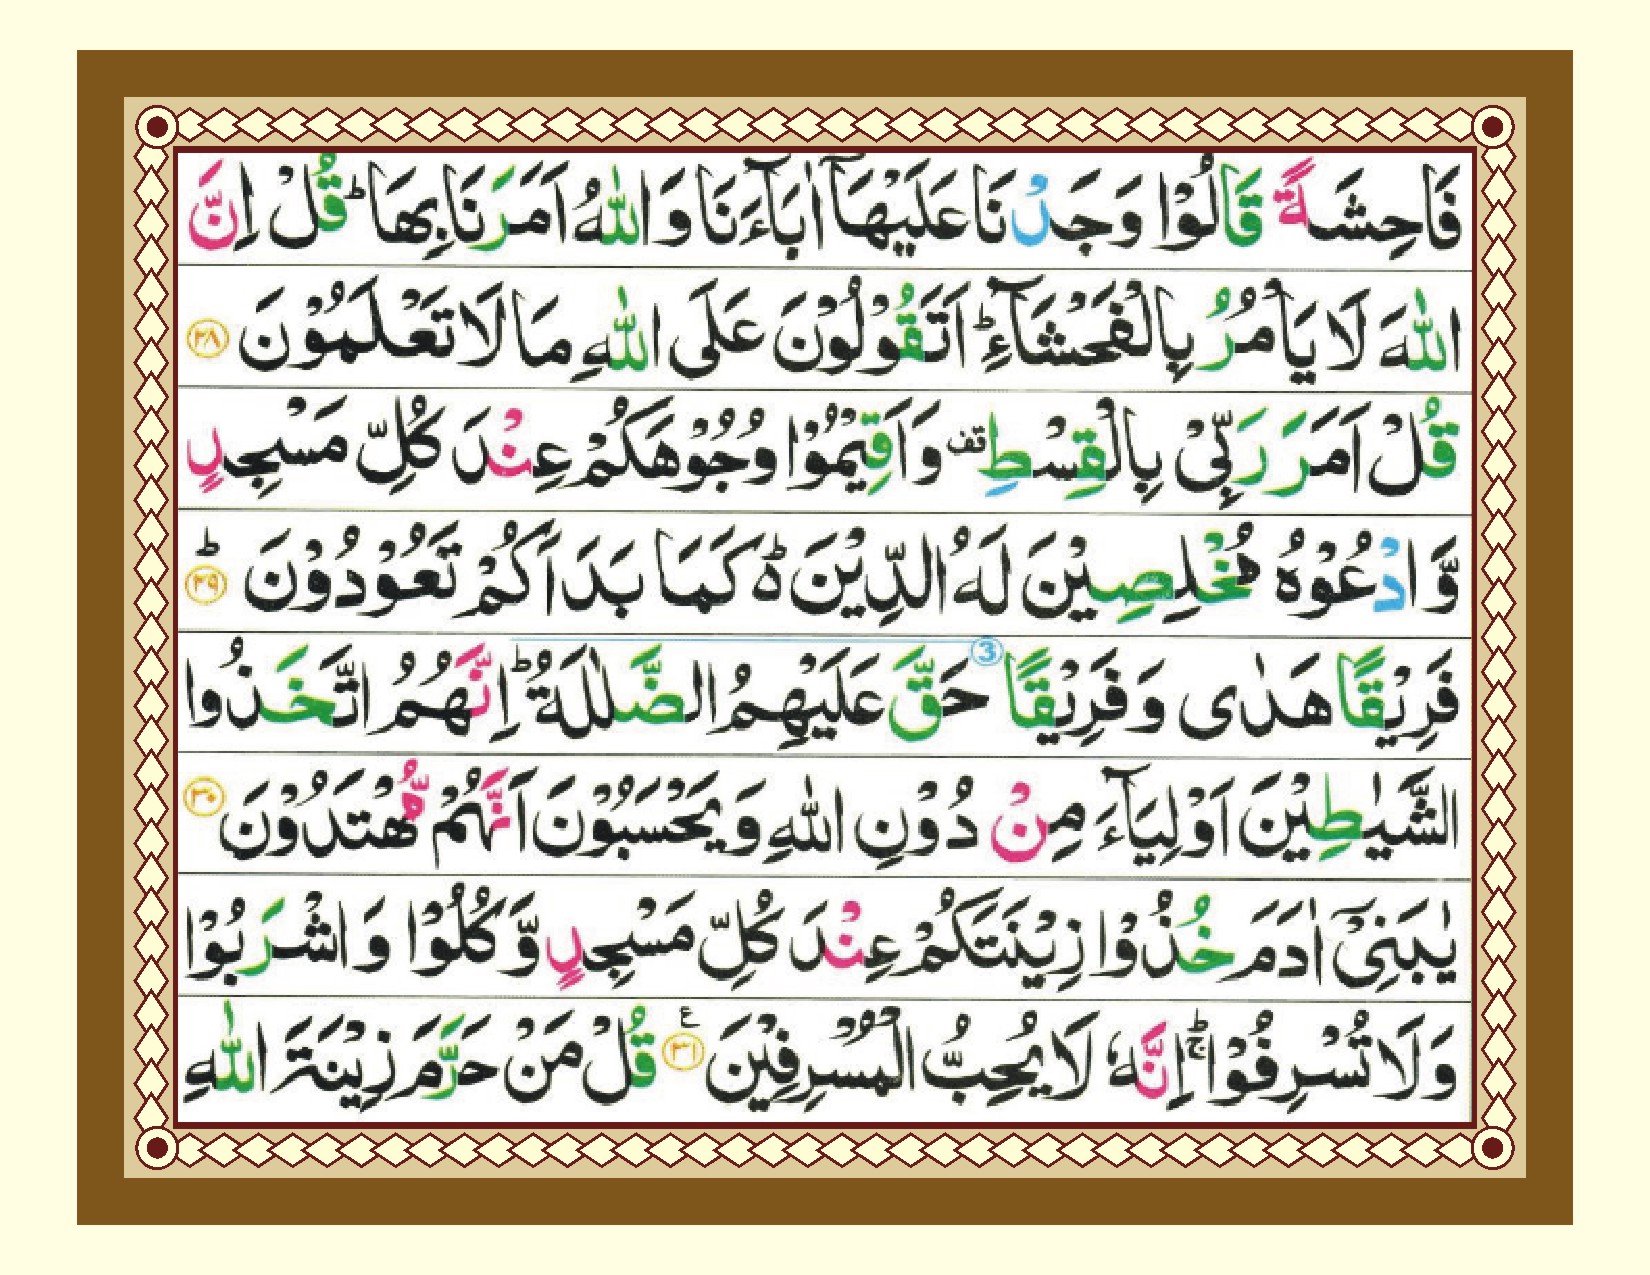 فَاحِشَةً قَالُوْا وَجَدْنَا عَلَيْهَاۤ اٰبَآءَنَا وَاللّٰهُ اَمَرَنَا بِهَا ؕ قُلْ اِنَّ
اللّٰهَ لَا يَاْمُرُ بِالْفَحْشَآءِ ؕ اَتَقُوْلُوْنَ عَلَى اللّٰهِ مَا لَا تَعْلَمُوْنَ ﴿۲۸﴾
قُلْ اَمَرَ رَبِّىْ بِالْقِسْطِ قف وَاَقِيْمُوْا وُجُوْهَكُمْ عِنْدَ كُلِّ مَسْجِدٍ
وَّادْعُوْهُ مُخْلِصِيْنَ لَهُ الدِّيْنَ ؕ۬ كَمَا بَدَاَكُمْ تَعُوْدُوْنَ ؕ ﴿۲۹﴾
فَرِيْقًا هَدٰى وَفَرِيْقًا 3 حَقَّ عَلَيْهِمُ الضَّلٰلَةُ ؕ اِنَّهُمُ اتَّخَذُوا
الشَّيٰطِيْنَ اَوْلِيَآءَ مِنْ دُوْنِ اللّٰهِ وَيَحْسَبُوْنَ اَنَّهُمْ مُّهْتَدُوْنَ ﴿۳۰﴾
يٰبَنِىْۤ اٰدَمَ خُذُوْا زِيْنَتَكُمْ عِنْدَ كُلِّ مَسْجِدٍ وَّكُلُوْا وَاشْرَبُوْا
وَلَا تُسْرِفُوْا ۚ اِنَّهٗ لَا يُحِبُّ الْمُسْرِفِيْنَ ﴿۳۱﴾ ع قُلْ مَنْ حَرَّمَ زِيْنَةَ اللّٰهِ